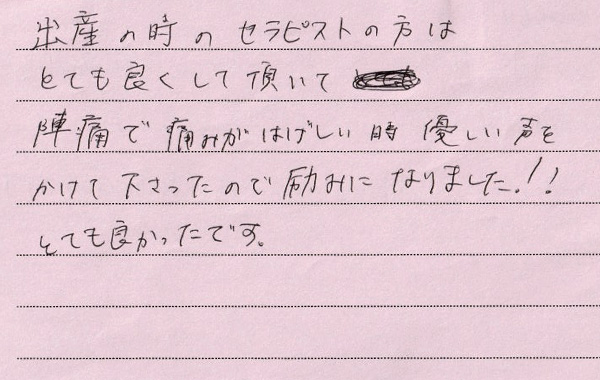 出産の時のセラピストの方は
とても良くして頂いて
陣痛で痛みがはげしい時 優しい声を
かけて下さったので励みになりました!!
とても良かったです。